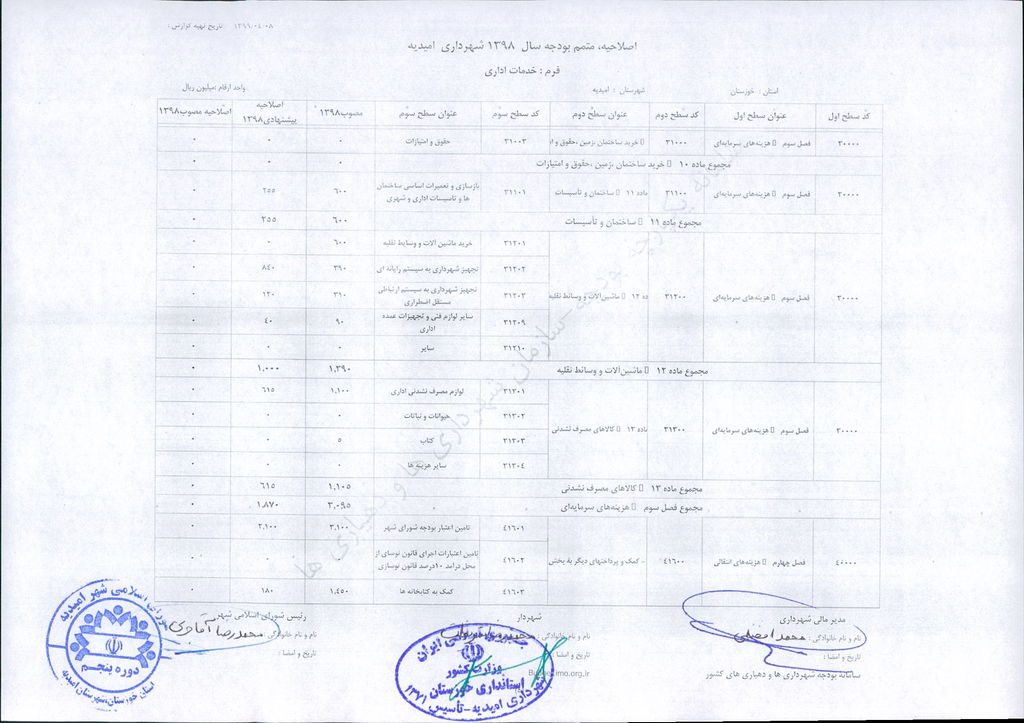 تاریخ تهیه گزارش : ۱۳۹۹/۰۴/۰۸
اصلاحیه، متمم بودجه سال ۱۳۹۸ شهرداری امیدیه
فرم : خدمات اداری
استان : خوزستان شهرستان : امیدیه واحد ارقام :میلیون ریال
کد سطح اول عنوان سطح اول کد سطح دوم عنوان سطح دوم کد سطح سوم عنوان سطح سوم مصوب۱۳۹۸ اصلاحیه پیشنهادی۱۳۹۸ اصلاحیه مصوب۱۳۹۸
۳۰۰۰۰ فصل سوم هزینه‌های سرمایه‌ای ۳۱۰۰۰ خرید ساختمان ،زمین ،حقوق و ا ۳۱۰۰۳ حقوق و امتیازات ۰ ۰ ۰
مجموع ماده ۱۰ خرید ساختمان ،زمین ،حقوق و امتیازات ۰ ۰ ۰
۳۰۰۰۰ فصل سوم هزینه‌های سرمایه‌ای ۳۱۱۰۰ ماده ۱۱ ساختمان و تاسیسات ۳۱۱۰۱ بازسازی و تعمیرات اساسی ساختمان ها و تاسیسات اداری و شهری ۶۰۰ ۲۵۵ ۰
مجموع ماده ۱۱ ساختمان و تأسیسات ۶۰۰ ۲۵۵ ۰
۳۰۰۰۰ فصل سوم هزینه‌های سرمایه‌ای ۳۱۲۰۰ ده ۱۲ ماشین‌آلات و وسائط نقلیه
۳۱۲۰۱ خرید ماشین آلات و وسایط نقلیه ۶۰۰ ۰ ۰
۳۱۲۰۲ تجهیز شهرداری به سیستم رایانه ای ۳۹۰ ۸۴۰ ۰
۳۱۲۰۳ تجهیز شهرداری به سیستم ارتباطی مستقل اضطراری ۳۱۰ ۱۲۰ ۰
۳۱۲۰۹ سایر لوازم فنی و تجهیزات عمده اداری ۹۰ ۴۰ ۰
۳۱۲۱۰ سایر ۰ ۰ ۰
مجموع ماده ۱۲ ماشین‌آلات و وسائط نقلیه ۱,۳۹۰ ۱,۰۰۰ ۰
۳۰۰۰۰ فصل سوم هزینه‌های سرمایه‌ای ۳۱۳۰۰ ماده ۱۳ کالاهای مصرف نشدنی
۳۱۳۰۱ لوازم مصرف نشدنی اداری ۱,۱۰۰ ۶۱۵ ۰
۳۱۳۰۲ حیوانات و نباتات ۰ ۰ ۰
۳۱۳۰۳ کتاب ۵ ۰ ۰
۳۱۳۰۴ سایر هزینه ها ۰ ۰ ۰
مجموع ماده ۱۳ کالاهای مصرف نشدنی ۱,۱۰۵ ۶۱۵ ۰
مجموع فصل سوم هزینه‌های سرمایه‌ای ۳,۰۹۵ ۱,۸۷۰ ۰
۴۰۰۰۰ فصل چهارم هزینه‌های انتقالی ۴۱۶۰۰ - کمک و پرداختهای دیگر به بخش
۴۱۶۰۱ تامین اعتبار بودجه شورای شهر ۳,۱۰۰ ۲,۱۰۰ ۰
۴۱۶۰۲ تامین اعتبارات اجرای قانون نوسای از محل درآمد ۱۰درصد قانون نوسازی ۰ ۰ ۰
۴۱۶۰۳ کمک به کتابخانه ها ۱,۴۵۰ ۱۸۰ ۰
مدیر مالی شهرداری شهردار رئیس شورای اسلامی شهر
نام و نام خانوادگی : محمد نام و نام خانوادگی : محمد نام و نام خانوادگی : محمدرضا
تاریخ و امضا : تاریخ و امضا :
سامانه بودجه شهرداری ها و دهیاری های کشور imo.org.ir
جمهوری اسلامی ایران
وزارت کشور
استانداری خوزستان
شهرداری امیدیه-تأسیس ۱۳۶۱
شورای اسلامی شهر امیدیه
دوره پنجم
استان خوزستان،شهرستان امیدیه
سازمان شهرداری ها و دهیاری ها